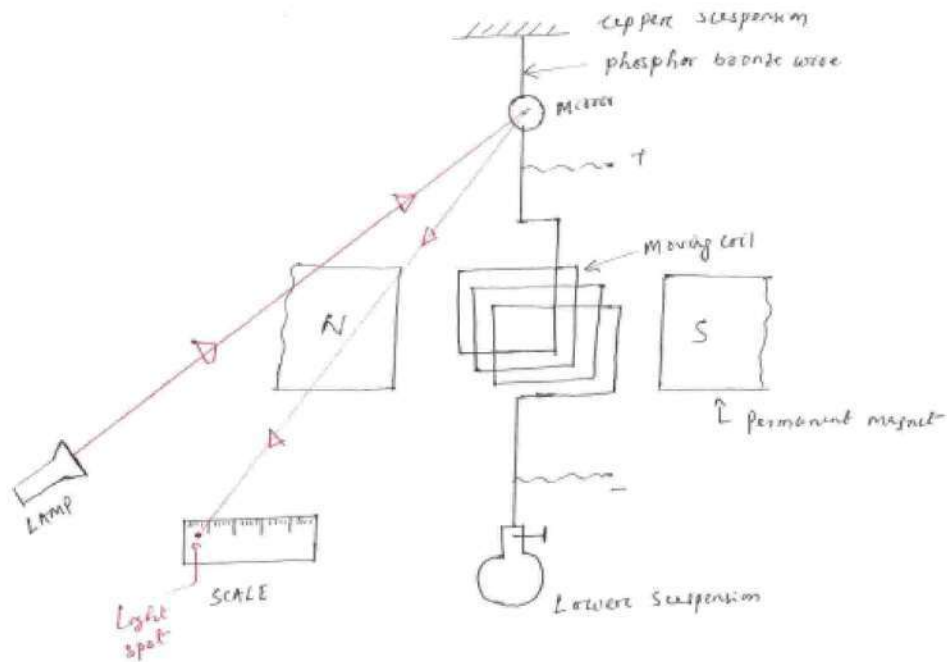 cuppere suspension
phosphor bronze wire
Mirror
+
Moving coil
N
S
Permanent magnet
LAMP
-
SCALE
Light
spot
Lowere suspension